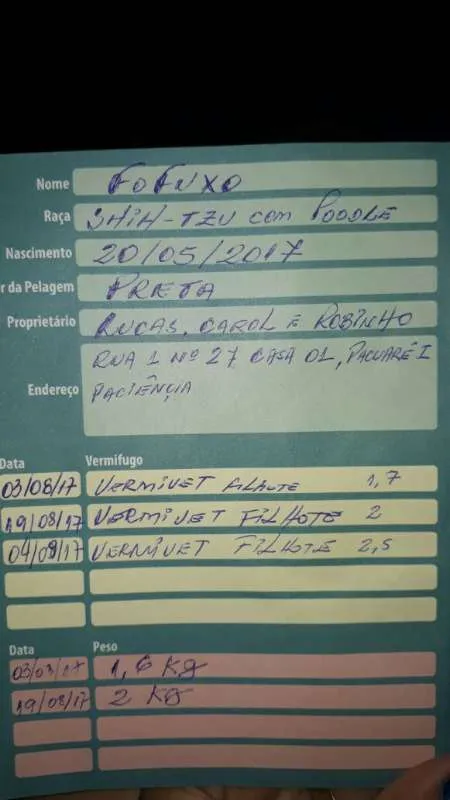 Nome FOFUXO
Raça SHIH-TZU com POODLE
Nascimento 20/05/2017
r da Pelagem PRETA
Proprietário LUCAS, CAROL E ROBINHO
RUA 1 Nº 27 CASA 01, PACUARÉ I
Endereço PACIÊNCIA
Data Vermifugo
03/08/17 VERMIVET FILHOTE 1,7
19/08/17 VERMIVET FILHOTE 2
04/09/17 VERMIVET FILHOTE 2,5
Data Peso
03/08/17 1,6 Kg
19/08/17 2 Kg